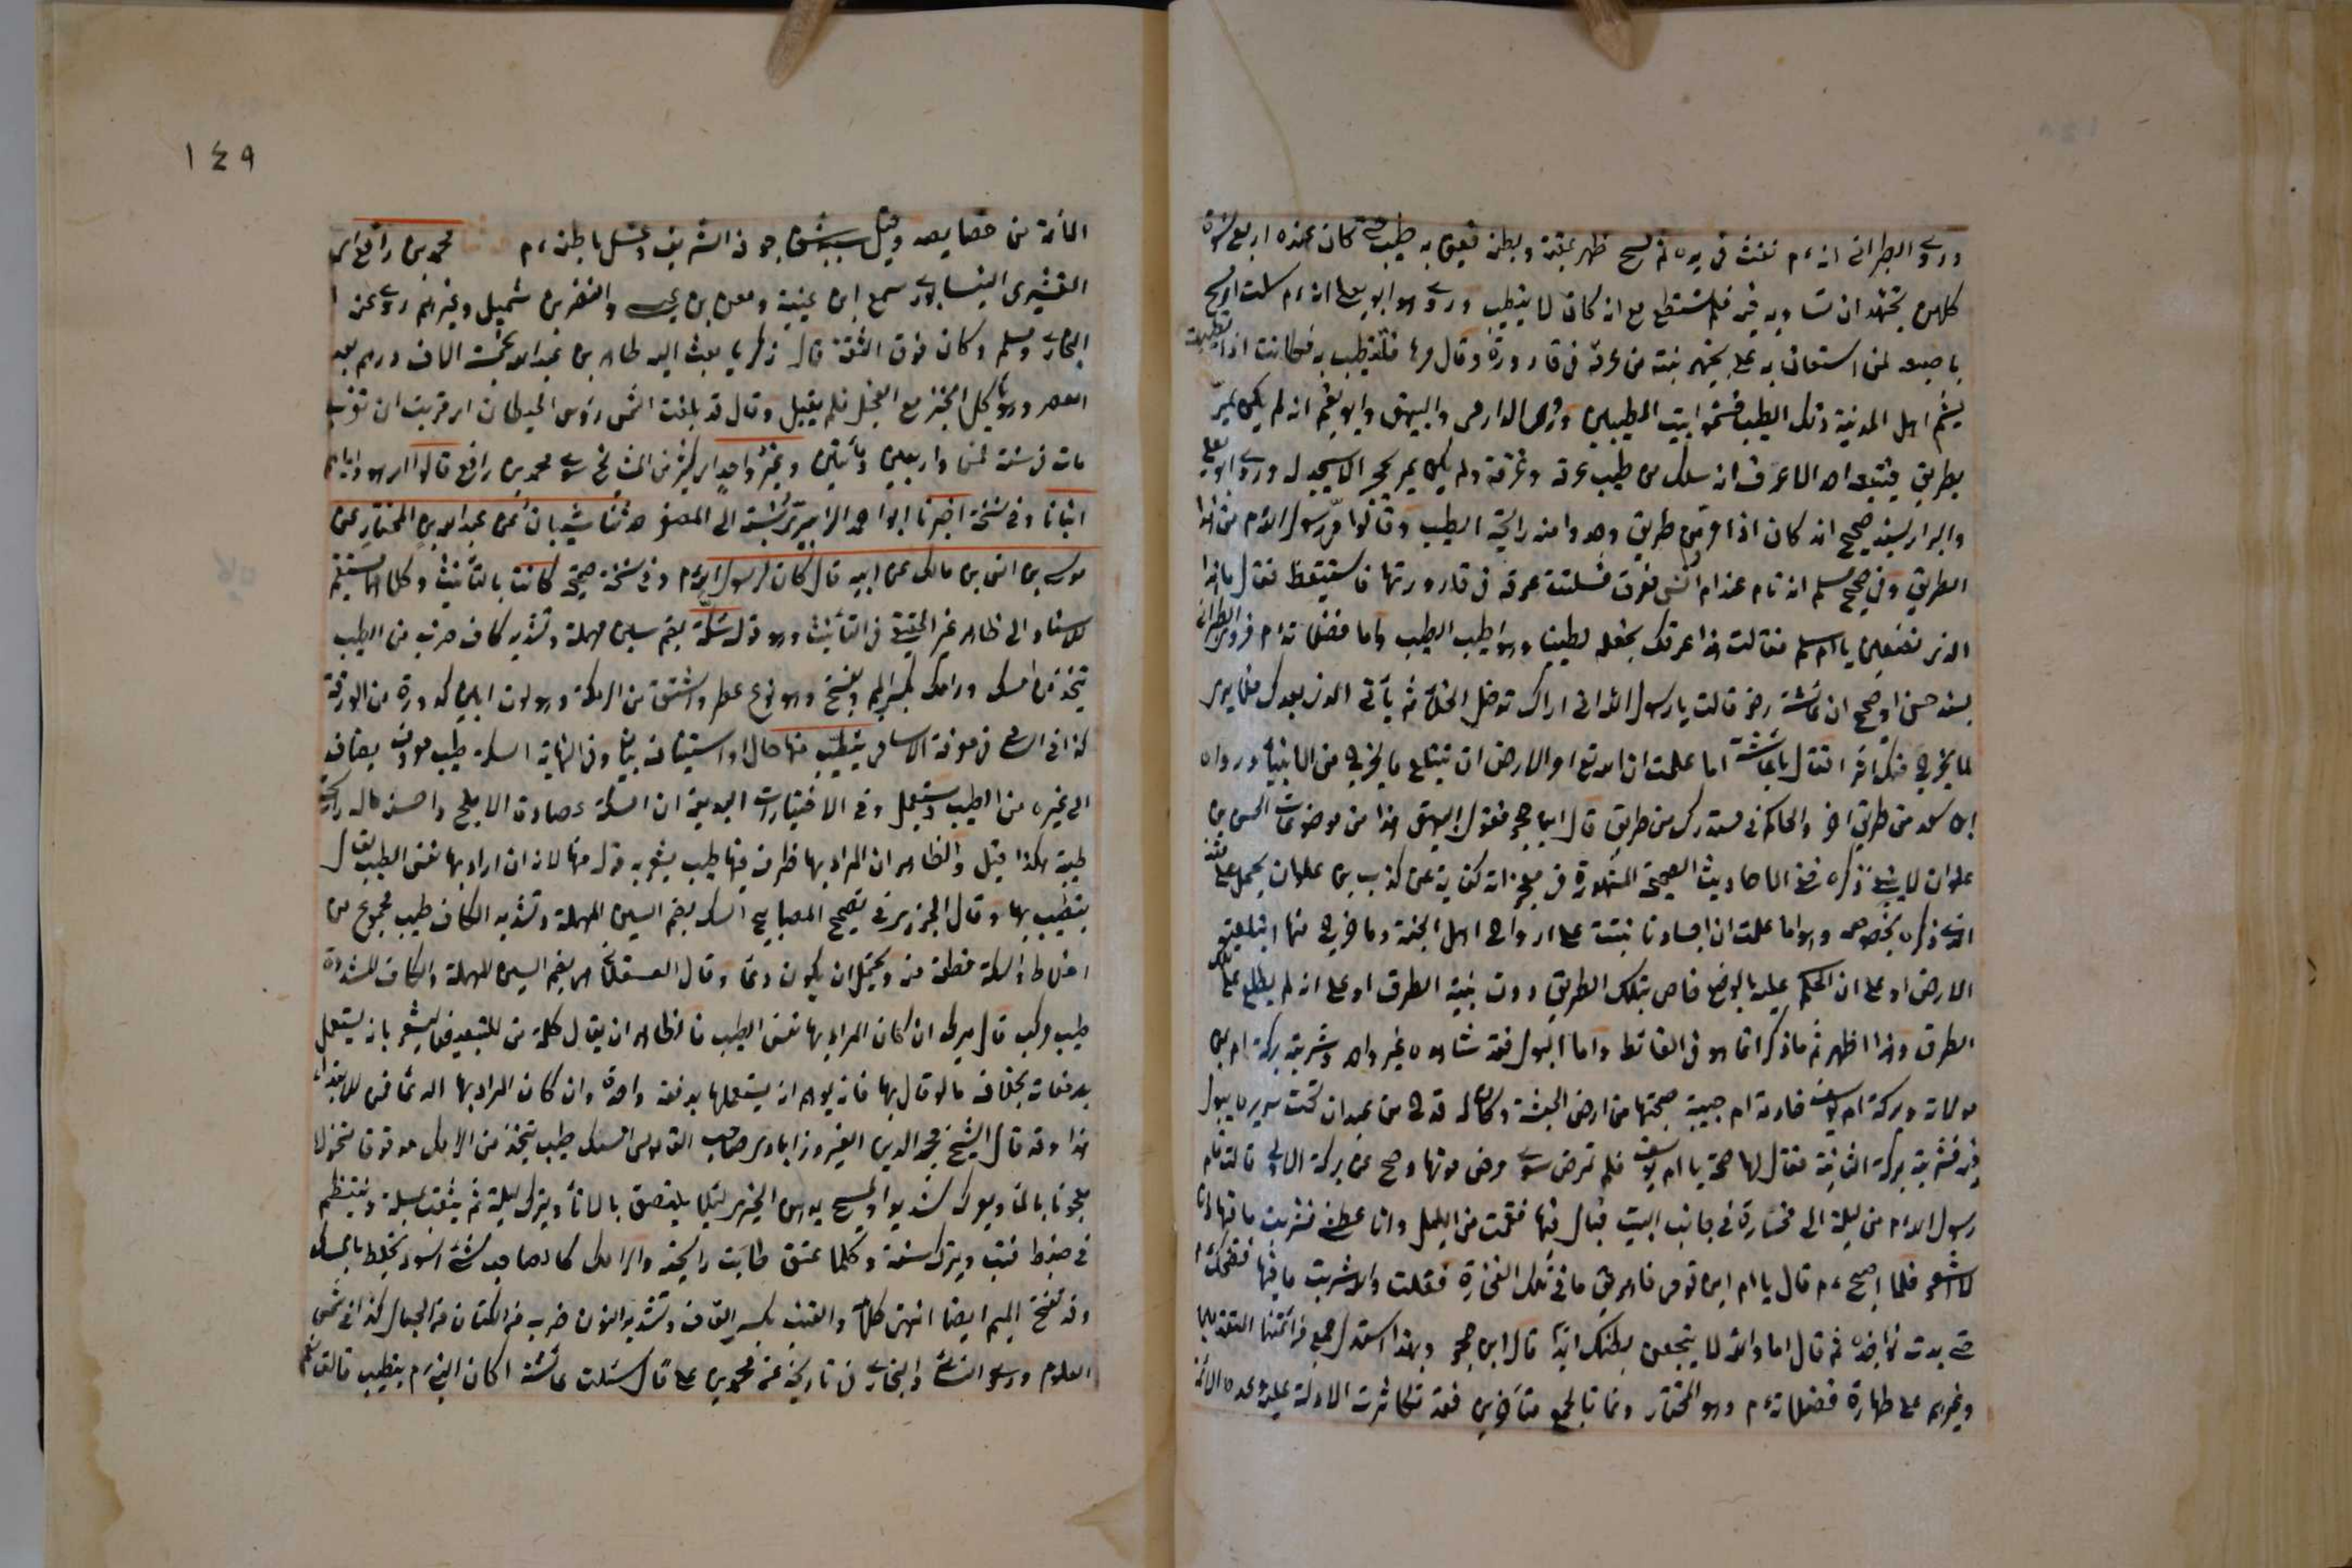 وروى الطبرانى انه ءم نفث فى يده ثم مسح ظهر عقبة وبطنه فعبق به طيب حتى كان عنده اربع نسوة
كلهن تجتهد ان تساويه فيه فلم تستطع مع انه كان لا يتطيب وروى هو وابو يعلى انه ءم سلت او مسح
باصبعه لمن استعان به على تجهيز بنته من عرقه فى قارورة وقال مرها فلتطيب به فكانت اذا تطيبت
يشم اهل المدينة ذلك الطيب فسموا بيت المطيبين وروى الدارمى والبيهقى وابو نعيم انه لم يكن يمر
بطريق فيتبعه احد الا عرف انه سلكه من طيب عرقه وعرفه ولم يكن يمر بحجر الا سجد له وروى ابو يعلى
والبزار بسند صحيح انه كان اذا مر من طريق وجدوا منه رائحة الطيب وقالوا مر رسول الله ءم من هذا
الطريق وفى صحيح مسلم انه نام عند ام انس فعرق فسلتت عرقه فى قارورتها فاستيقظ فقال ما هذا
الذى تصنعين يا ام سليم فقالت هذا عرقك نجعله لطيبنا وهو اطيب الطيب واما فضلاته ءم فروى الطبرانى
بسند حسن او صحيح ان عائشة رض قالت يا رسول الله انى اراك تدخل الخلاء ثم يأتى الذى بعدك فلا يرى
لما يخرج منك اثرا فقال يا عائشة اما علمت ان الله تع امر الارض ان تبتلع ما يخرج من الانبياء ورواه
ابن سعد من طريق اخر والحاكم فى مستدركه من طريق قال ابن حجر فقول البيهقى هذا من موضوعات الحسن بن
علوان لا ينبغى ذكره ففى الاحاديث الصحيحة المشهورة فى معجزاته كفاية عن كذب بن علوان يحمل على
الذى ذكره بخصوصه وهو اما علمت ان اجسادنا نبتت على ارواح اهل الجنة وما خرج منها ابتلعته
الارض او على ان الحكم عليه بالوضع خاص بتلك الطريق دون بقية الطرق او على انه لم يطلع على
الطرق وهذا اظهر ثم ما ذكر انما هو فى الغائط واما البول فقد شاهده غير واحد وشربته بركة ام ايمن
مولاته وبركة ام يوسف خادمة ام حبيبة صحبتها من ارض الحبشة وكان له قدح من عيدان تحت سريره يبول
فيه فشربته بركة الثانية فقال لها صحة يا ام يوسف فلم تمرض سوى مرض موتها وصح عن بركة الاولى قالت قام
رسول الله ءم من ليلة الى فخارة فى جانب البيت فبال فيها فقمت من الليل وانا عطشى فشربت ما فيها وانا
لا اشعر فلما اصبح ءم قال يا ام ايمن قومى فاهريقى ما فى تلك الفخارة فقلت والله شربت ما فيها فضحك ءم
حتى بدت نواجذه ثم قال اما والله لا ييجعن بطنك ابدا قال ابن حجر وبهذا استدل جمع من ائمتنا المتقدمين
وغيرهم على طهارة فضلاته ءم وهو المختار وفاقا لجمع متأخرين فقد تكاثرت الادلة عليه وعده الائمة
١٤٩
الائمة من خصايصه وقيل سببه شق جوفه الشريف وغسل باطنه ءم محمد بن رافع اى
القشيرى النيسابورى سمع ابن عيينة ومعن بن عيسى والنضر بن شميل وغيرهم روى عنه
البخارى ومسلم وكان فوق الثقة قال زكريا بعث اليه طاهر بن عبد الله بخمسة الاف درهم بعد
العصر وهو يأكل الخبز مع الفجل فلم يقبل وقال قد بلغت الشمس رؤس الحيطان اى قربت ان تغرب
مات فى سنة خمس واربعين ومأتين وغير واحد اى كثير من المشايخ سوى محمد بن رافع قالوا اى هو واياهم
انبانا وفى نسخة اخبرنا ابو احمد الزبيرى نسبة الى المصغر حدثنا شيبان عن عبد الله بن المختار عن
موسى بن انس بن مالك عن ابيه قال كان لرسول الله ءم وفى نسخة صحيحة كانت بالتأنيث وكلاهما مستقيم
للاسناد الى ظاهر غير الحقيقى فى التأنيث وهو قوله سكة بضم سين مهملة وتشديد كاف ضرب من الطيب
يتخذ من مسك ورامك بكسر الميم وبفتح وهو نوع عطر واشتق من الرمكة وهو لون ابلق كدورة من الورقة
كذا فى السامى فى معرفة الاسامى يتطيب منها حال او استيناف بيان وفى النهاية السكة طيب معروف يضاف
الى غيره من الطيب ويستعمل وفى الاختيارات البديعى ان السكة عصارة الاملج واحسنه ما له رائحة
طيبة هكذا قيل والظاهر ان المراد بها ظرف فيها طيب يشعر به قوله منها لانه ان اراد بها نفس الطيب لقال
يتطيب بها وقال الجزرى فى تصحيح المصابيح السك بضم السين المهملة وتشديد الكاف طيب مجموع من
اخلاط والسكة قطعة منه ويحتمل ان يكون وعاء وقال العسقلانى هى بضم السين المهملة والكاف المشددة
طيب مركب قال ميرك ان كان المراد بها نفس الطيب فالظاهر ان يقال كلمة من للتبعيض فيشعر بانه يستعمل
بدفعات بخلاف ما لو قال بها فانه يوهم انه يستعملها بدفعة واحدة وان كان المراد بها الوعاء فمن للابتداء
هذا وقد قال الشيخ مجد الدين الفيروزابادى صاحب القاموس السك طيب يتخذ من الرامك مدقوقا منخولا
معجونا بالماء ويعرك شديدا ويمسح بدهن الخيرى لئلا يلتصق بالاناء ويترك ليلة ثم يثقب بمسلة وينظم
فى خيط قنب ويترك سنة وكلما عتق طابت رائحته والرامك كالصاحب شئ اسود يخلط بالمسك
وقد تفتح الميم ايضا انتهى كلامه والقنب بكسر القاف وتشديد النون ضرب من الكتان فى الجبال كذا فى شمس
العلوم وروى النسائى والبخارى فى تاريخه عن محمد بن على قال سئلت عائشة اكان النبى ءم يتطيب قالت نعم